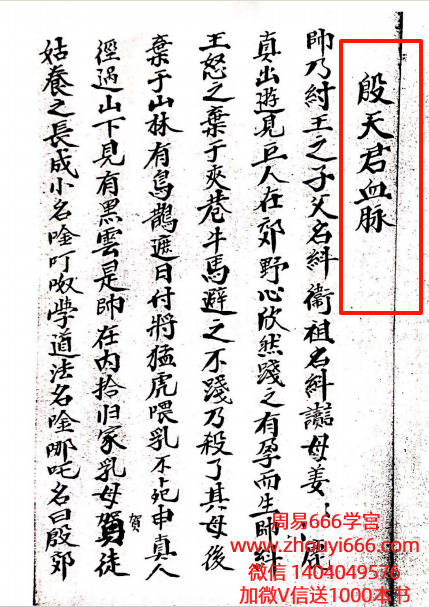 殷天君血脉
帥乃紂王之子父名紏衛祖名紏讀母姜
真出遊見巨人在郊野心欣然踐之有孕而生帥紏
王怒之棄于夾巷牛馬避之不踐乃殺了其母後
棄于山林有鳥鵲遮日付將猛虎喂乳不死申真人
徑過山下見有黑雲是帥在内拾归家乳母賀徒
賀
姑養之長成小名唫叮呶學道法名唫哪吒名曰殷郊
周易666学宫
www.zhouyi666.com
微信 1404049576
加微V信送1000本书